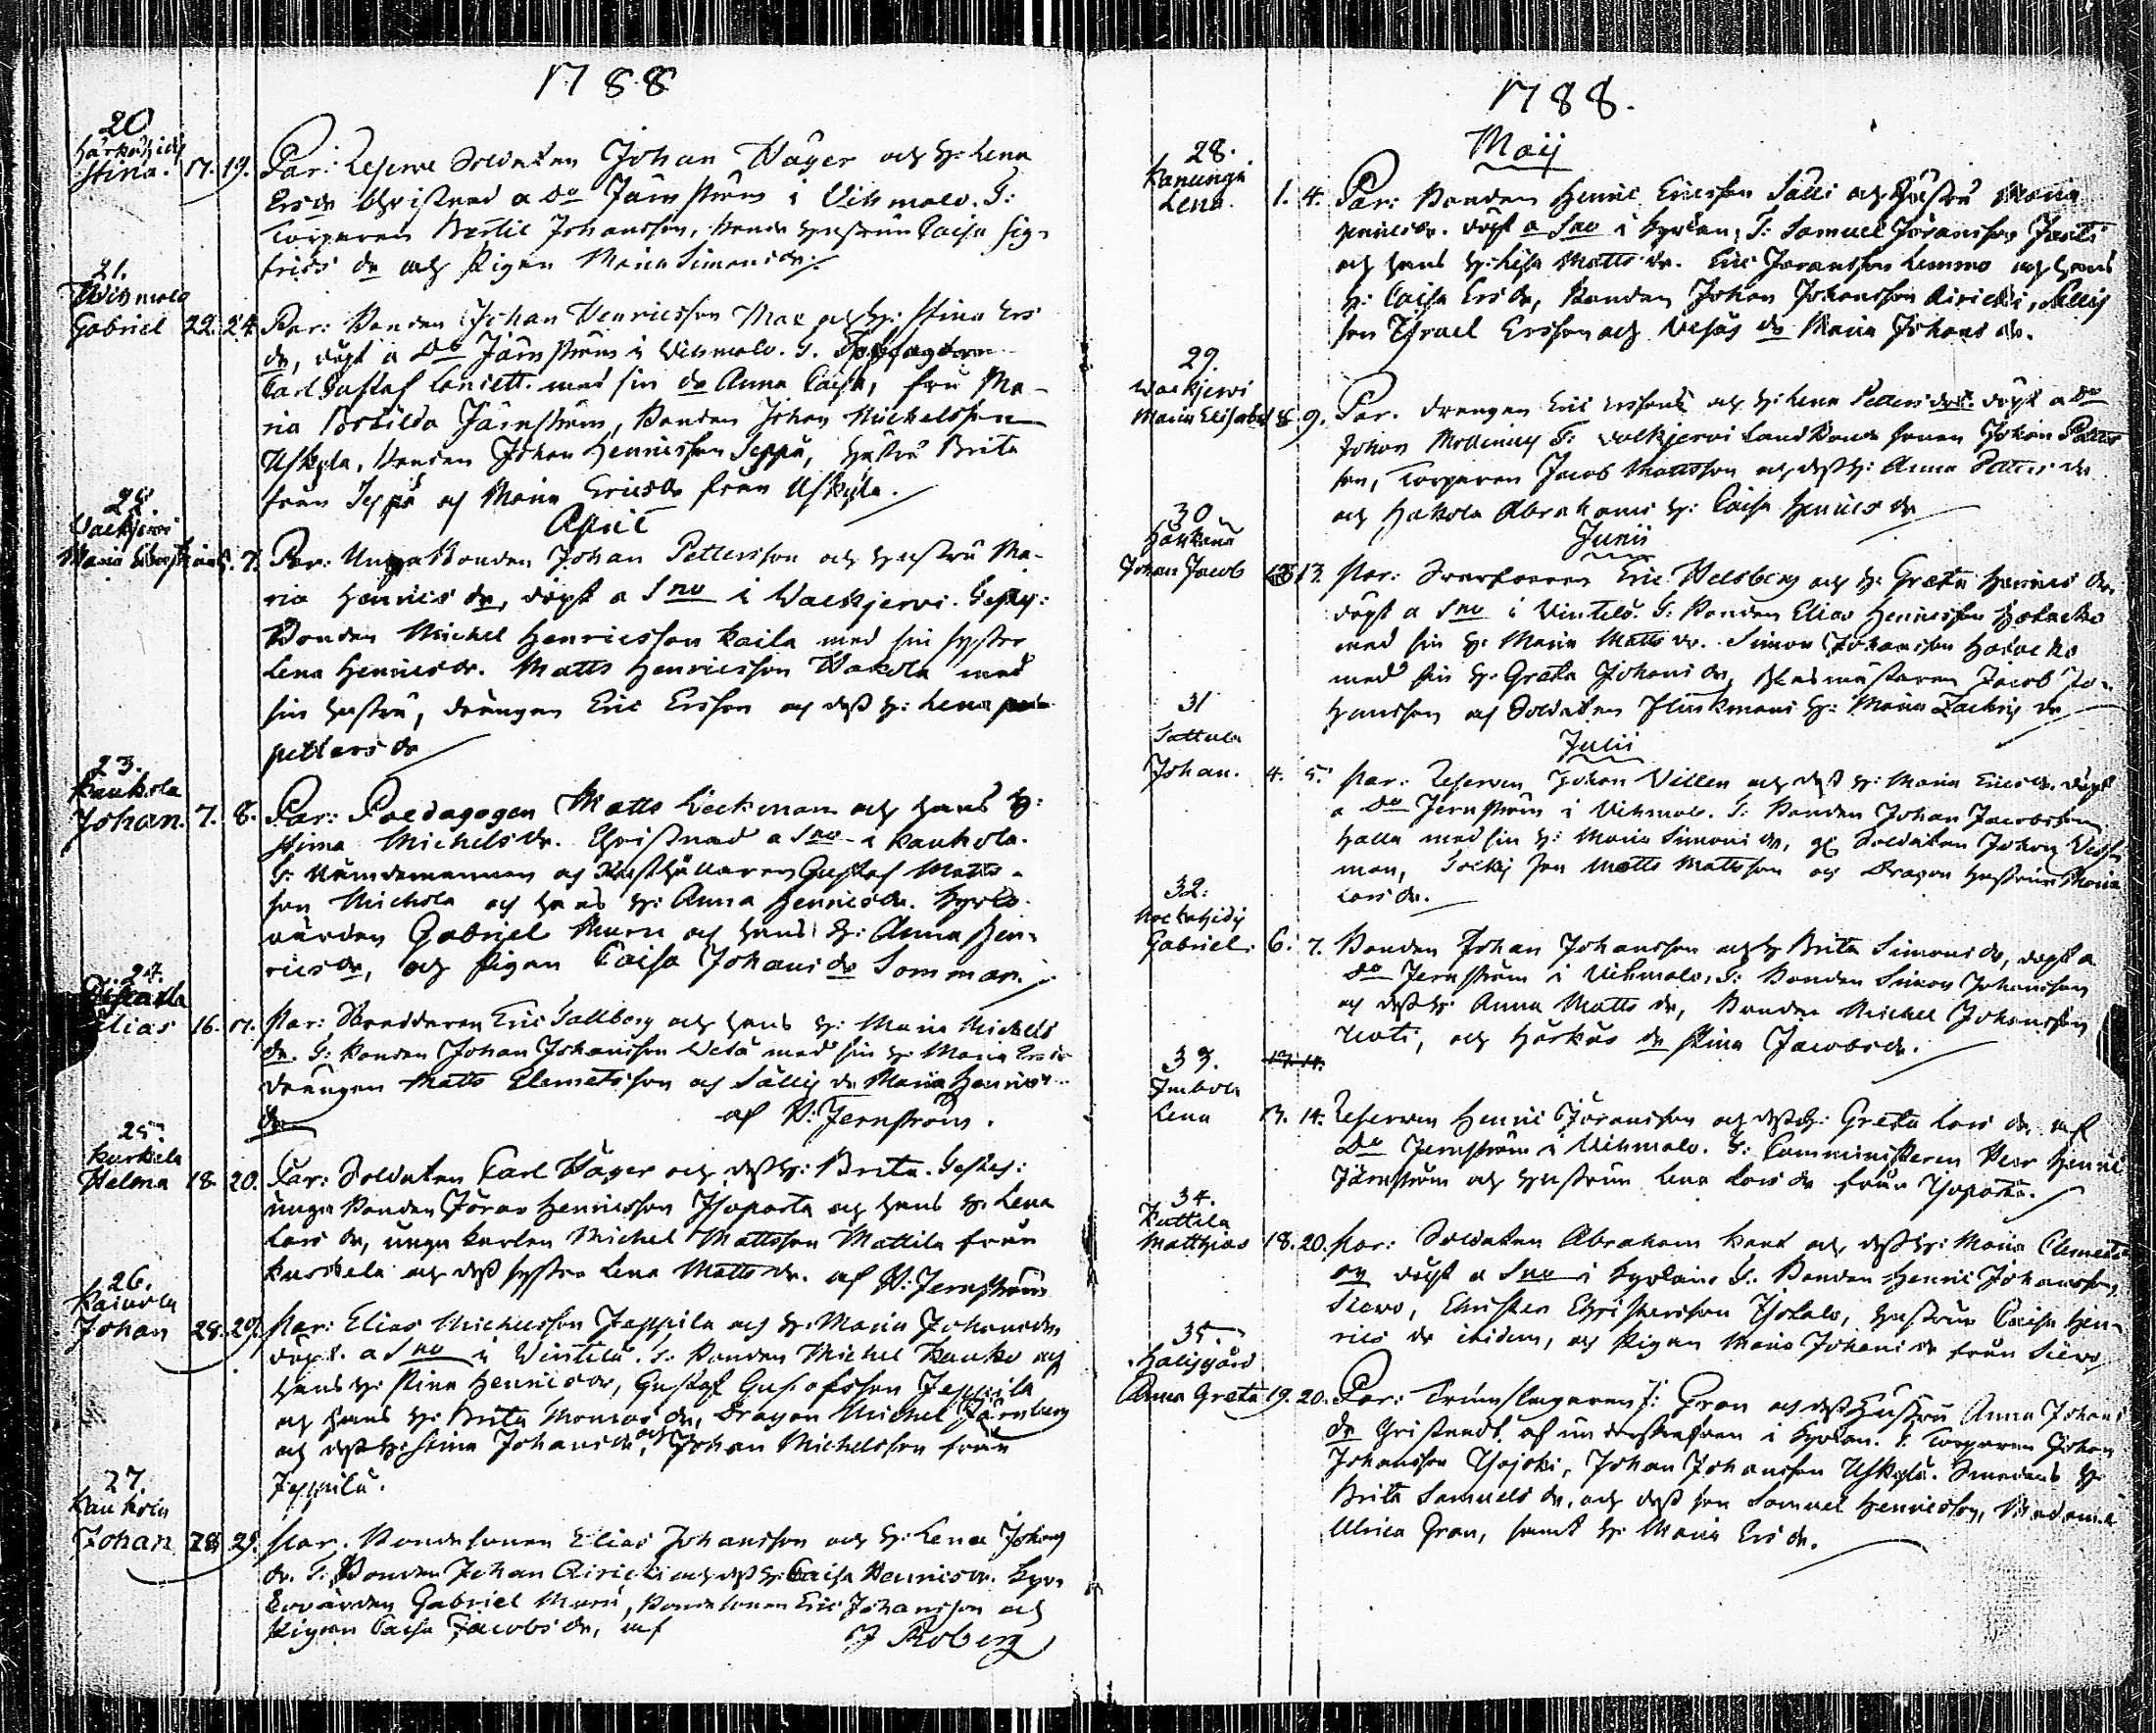 1788
20
Härkähidi
Stina. 17. 19. Par: Reserve Soldaten Johan Wäger och H: Lena
Ersdr Christnad a Do Järnström i Wihmalo. T:
Torparen Bertil Johansson, hustrun Caisa Sig-
frids dr och Pigan Maria Simonsdr.
21.
Wihmalo
Gabriel 22. 24. Par: Bonden Johan Henricsson Max och H: Stina Ers
dr, döpt a Do Järnström i Wihmalo. T.
Carl Gustaf med sin dr Anna Caisa, fru Ma-
ria Järnström, Bonden Johan Michelsson
Uskyla, Bonden Johan Henricsson Seppä, Hustru Brita
från Seppä och Maria Ericsdr från Uskyla.
April
22.
Waekjervi
Maria 7. Par: Unga Bonden Johan Pettersson och Hustru Ma-
ria Henricsdr, döpt a Sno i Waekjervi. Test:
Bonden Michel Henricsson Kaila med sin syster
Lena Henricsdr. Matts Henricsson Wakola med
sin hustru, drängen Eric Ersson och dess H: Lena
petters dr
23.
Kaukola
Johan. 7. 8. Par: Paedagogen Matts Weckman och hans H:
Stina Michelsdr. Christnad a Sno i Kaukola.
T: Nämndemannen och Rusthållaren Gustaf Matts-
son Michola och hans H: Anna Henricsdr. Kyrko-
värden Gabriel Murri och hans H: Anna Hen-
ricsdr, och Pigan Caisa Johansdr Sommar.
24.
Elias 16. 17. Par: Skreddaren Eric Sallberg och hans H: Maria Michels
dr. T: Bonden Johan Johansson Wesa med sin H: Maria Ersdr
drängen Matts Clemetsson och Sällis dr Maria Henrics-
dr af P: Jernström.
25.
Kurkela
Helena 18. 20. Par: Soldaten Carl Wäger och dess H: Brita. Test:
unga Bonden Jöran Henricsson Isoparta och hans H: Lena
Lars dr, unga karlen Michel Mattsson Mattila från
Kurkela och dess syster Lena Mattsdr. af P: Jernström
26.
Kainola
Johan 28. 29. Par: Elias Michelsson Jeppila och H: Maria Johansdr
döpt. a Sno i Vintela. T: Bonden Michel Kauko och
hans H: Stina Henricsdr, Gustaf Gustafsson Jeppila
och hans H: Brita Thomas dr, Dragon Michel Järnberg
och dess H: Stina Johansdr, och Johan Michelsson från
Jeppila.
27.
Kaukola
Johan 28. 29. Par. Bondesonen Elias Johansson och H: Lena Johans
dr. T: Bonden Johan Airicki och dess H: Caisa Henricsdr. Kyr-
kovärden Gabriel Murri, Bondesonen Eric Johansson och
Pigan Caisa Jacobsdr, af J Roberg
1788.
Maij
28.
Kanunga
Lena. 1. 4. Par: Bonden Henric Ericsson Sälli och Hustru Maria
Henricsdr. döpt a Sno i Kyrkan, T: Samuel Jöransson Jaati
och hans H: Lisa Mattsdr. Eric Jöransson Lemmo och hans
H: Caisa Ersdr, Bonden Johan Johansson Airicki, Sällis
son Israel Ersson och Wesas dr Maria Johansdr.
29.
Waekjervi
Maria Elisabet 8. 9. Par. drengen Eric Erssons och H: Lena Petters dr: döpt a Do
Johan Mollenius T: Waekjervi Landbonde sonen Johan Petters
son, Torparen Jacob Mattsson och dess H: Anna Petters dr
och Hakola Abrahams H: Caisa Henricsdr
Junii
30
Härkänä
Johan Jacob 13. Par: Svarfvaren Eric Welsberg och H: Greta Henrics dr,
döpt a Sno i Vintela. T: Bonden Elias Henricsson Holacko
med sin H: Maria Mattsdr. Simon Johansson Holacko
med sin H: Greta Johansdr, Glasmästaren Jacob Jo-
hansson och Soldaten Flinkmans H: Maria Zachris dr
Julii
31
Sattula
Johan. 4. 5. Par: Reserven Johan Villen och dess H: Maria Ericsdr. döpt
a Do Jernström i Wihmalo. T: Bonden Johan Jacobsson
Halla med sin H: Maria Simonsdr, och Soldaten Johan
man, Matts Mattsson och Dragon hustrun Maria
Larsdr.
32.
Gabriel. 6. 7. Bonden Johan Johansson och H Brita Simonsdr, döpt a
Do Jernström i Wihmalo, T: Bonden Simon Johansson
och dess H: Anna Mattsdr, Bonden Michel Johansson
och Härkäs dr Stina Jacobsdr.
33. 13. 14.
Imbola
Lena 13. 14. Reserven Henric Jöransson och dess H: Greta Lars dr af
Do Jernström i Wihmalo. T: Comministern Henric
Järnström och hustrun Lena Larsdr från Isoparta.
34.
Kuttila
Matthias 18. 20. Par: Soldaten Abraham och dess H: Maria Clemets
dr döpt a Sno i Kyrkan. T. Bonden Henric Johansson
Siervo, Christer Christersson Isotalo, hustrun Caisa Hen-
rics dr ibidem, och Pigan Maria Johansdr från Siervo
35.
Haligård
Anna Greta 19. 20. Par: Trumslagaren J: Gran och dess Hustru Anna Johans
dr Christnadt af i Kyrkan. T. Torparen Johan
Johansson Isojoki, Johan Johansson Uskyla. Smedens H:
Brita Samuels dr, och dess son Samuel Henricsson, Madame
Ulrica Gran, samt H: Maria Ersdr.